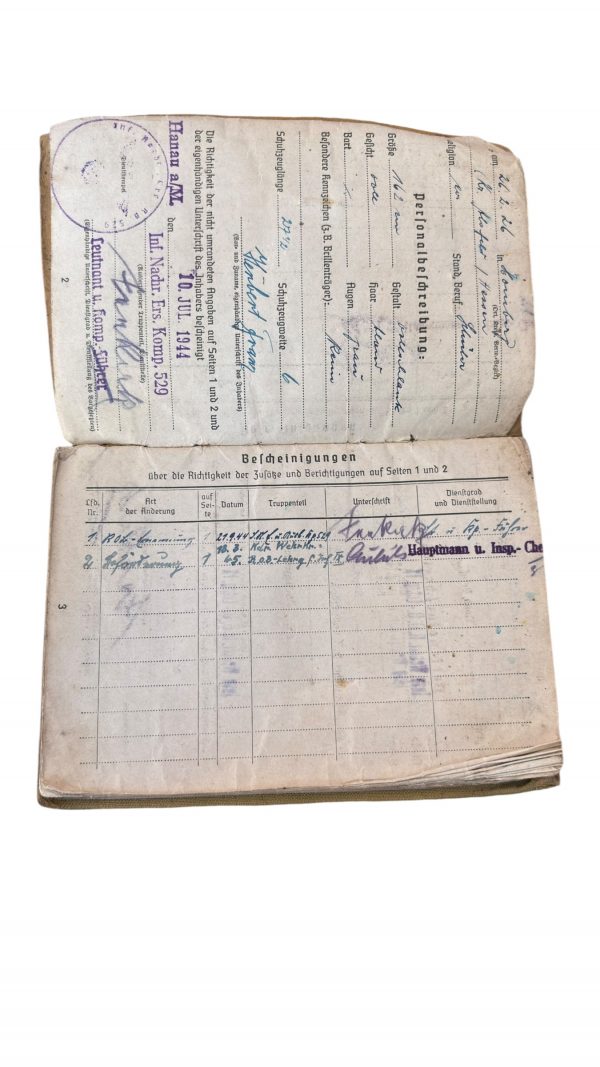 am 26.2.26 in
(Ort, Kreis, Verw.-Bezirk)
/ Hessen
Religion ev Stand, Beruf Schüler
Personalbeschreibung:
Größe 162 cm Gestalt
Gesicht oval Haar blond
Bart Augen grau
Besondere Kennzeichen (z. B. Brillenträger): Keine
Schuhzeuglänge 27½ Schuhzeugweite 6
Herbert
(Vor- und Zuname, eigenhändige Unterschrift des Inhabers)
Die Richtigkeit der nicht umrandeten Angaben auf Seiten 1 und 2 und
der eigenhändigen Unterschrift des Inhabers bescheinigt
Hanau a/M. den 10. JUL 1944
Inf. Nachr. Ers. Komp. 529
(Ausfertigender Truppenteil, Dienststelle)
Dienststempel
(Eigenhändige Unterschrift, Dienstgrad u. Dienststellung des Vorgesetzten)
Leutnant u. Komp.-Führer
2
Bescheinigungen
über die Richtigkeit der Zusätze und Berichtigungen auf Seiten 1 und 2
Lfd. Nr. Art der Änderung auf Seite Datum Truppenteil Unterschrift Dienstgrad und Dienststellung
1. Ernennung 1 21.9.44 529 Lt. u. Kp.-Führer
2. Beförderung 1 10.3. 45. Hauptmann u. Insp.-Che
3